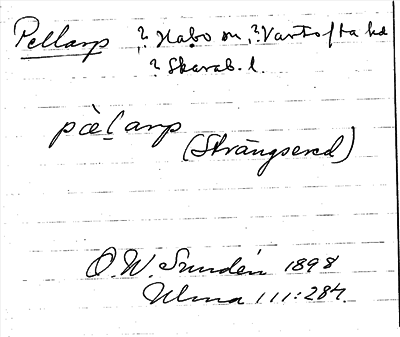 Pellarp ? Habo sn, ? Vartofta hd
? Skarab. l.
pæ̀l̲arp
(Strängsered)
O.W. Sundén 1898
Ulma 111:284.